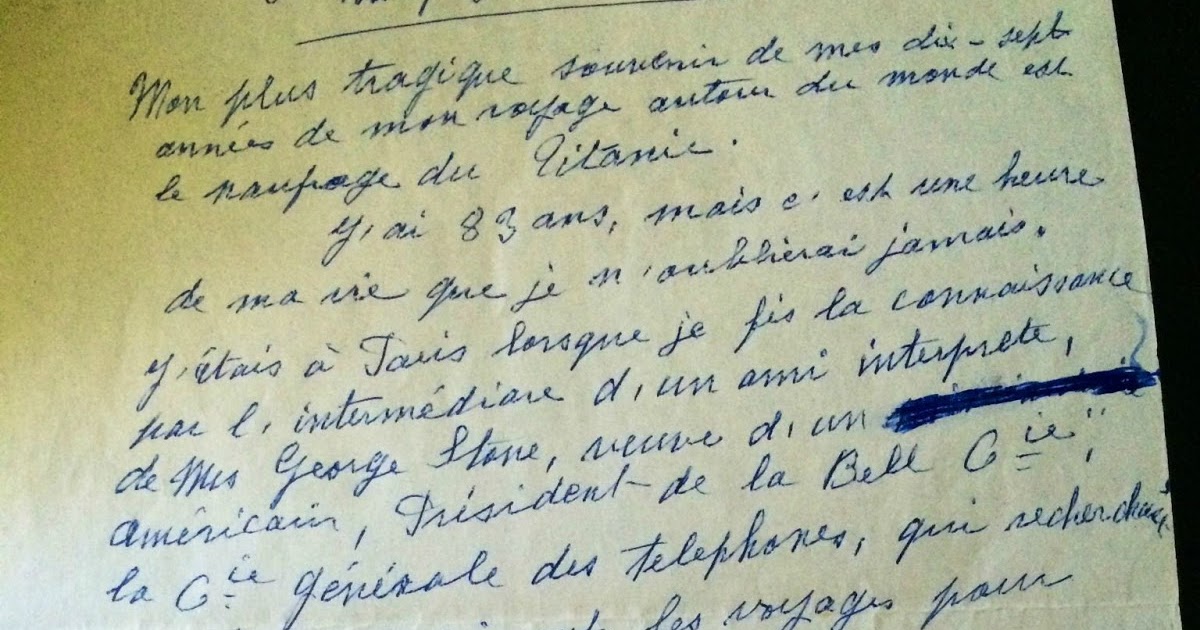 Mon plus tragique souvenir de mes dix-sept
années de mon voyage autour du monde est
le naufrage du Titanic.
J'ai 83 ans, mais c'est une heure
de ma vie que je n'oublierai jamais.
J'étais à Paris lorsque je fis la connaissance
par l'intermédiare d'un ami interprète,
de Mrs George Stone, veuve d'un
américain, Président de la Bell Cie",
la Cie générale des telephones, qui recherchait
les voyages pour